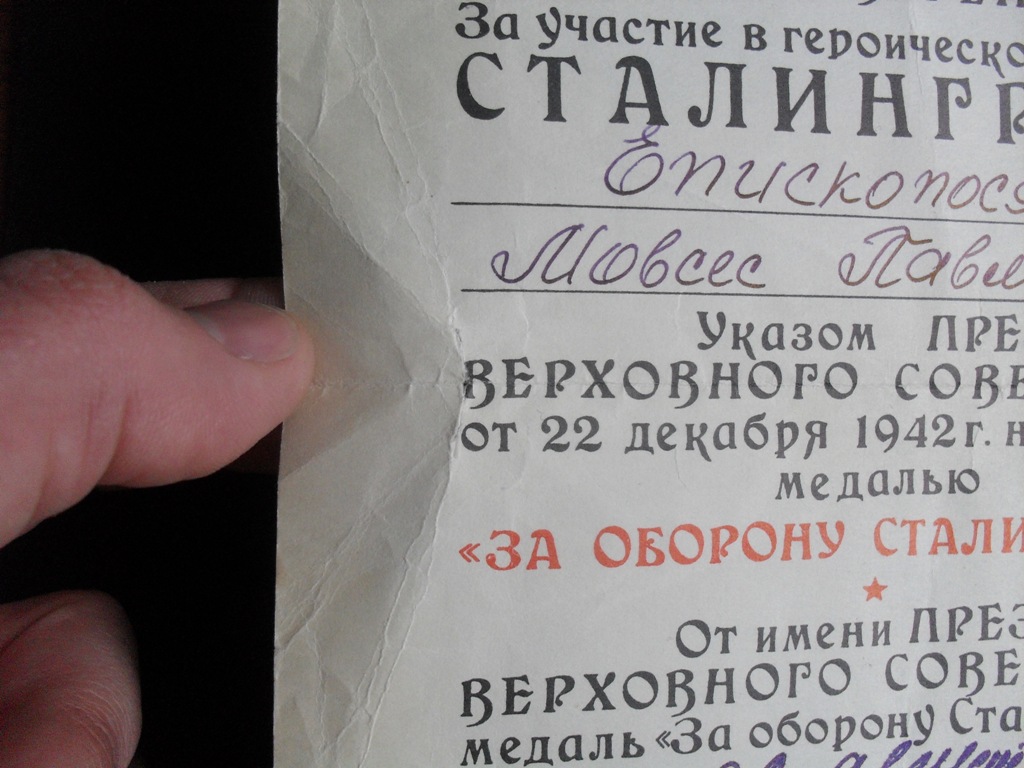 За участие в героическо
СТАЛИНГР
Епископося
Мовсес Павл
Указом ПРЕ
ВЕРХОВНОГО СОВЕ
от 22 декабря 1942 г. н
медалью
«ЗА ОБОРОНУ СТАЛИ
От имени ПРЕЗ
ВЕРХОВНОГО СОВЕ
медаль «За оборону Ста